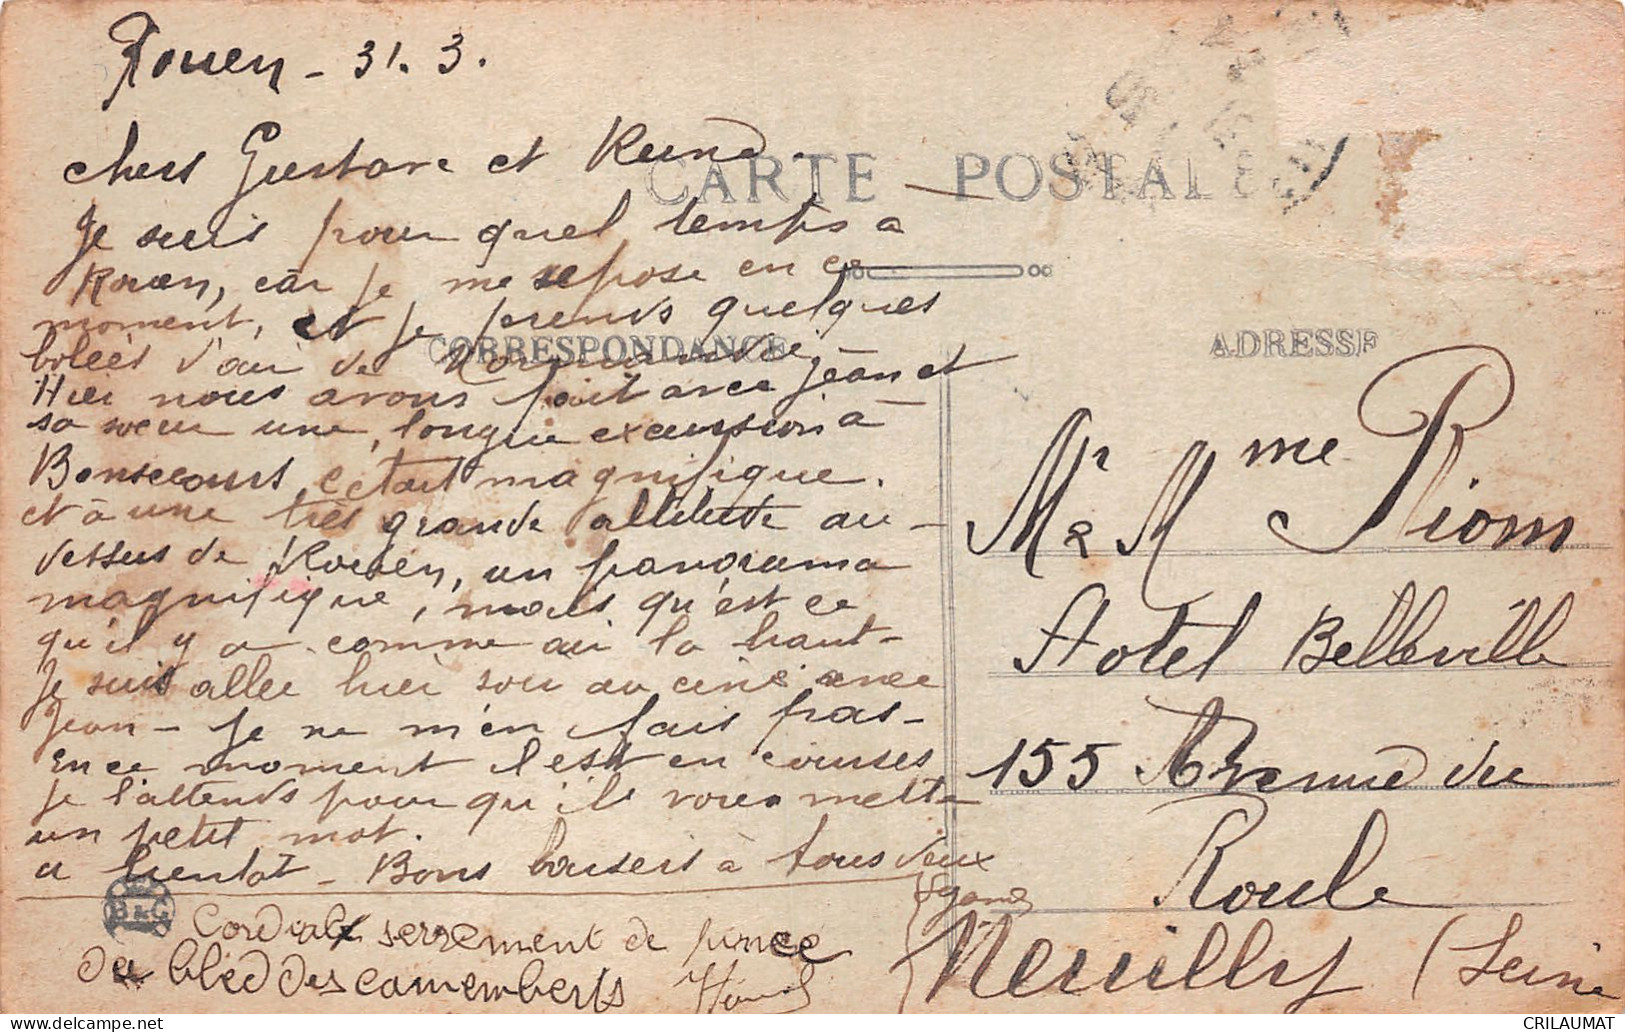 Rouen - 31. 3.
chers Gustave et
CARTE POSTALE
Je suis pour quel temps a
Rouen, car je me repose en ce
moment, et je prends quelques
bolées d'air de Normandie
CORRESPONDANCE
Hier nous avons fait avec Jean et
sa soeur une longue excursion à
Bonsecours c'etait magnifique.
et à une très grande altitude au-
dessus de Rouen, un panorama
magnifique, mais qu'est ce
qu'il y a comme air la haut-
Je suis allee hier soir au cine avec
Jean - Je ne m'en fais pas -
En ce moment il est en courses
je l'attends pour qu'il vous mette
un petit mot.
a bientôt - Bons baisers à tous deux
B & G
Cordial serrement de pince
du bled des camemberts
ADRESSE
Mr & Mme Riom
Hotel Belleville
155 Avenue du
Roule
Neuilly (Seine
CRILAUMAT